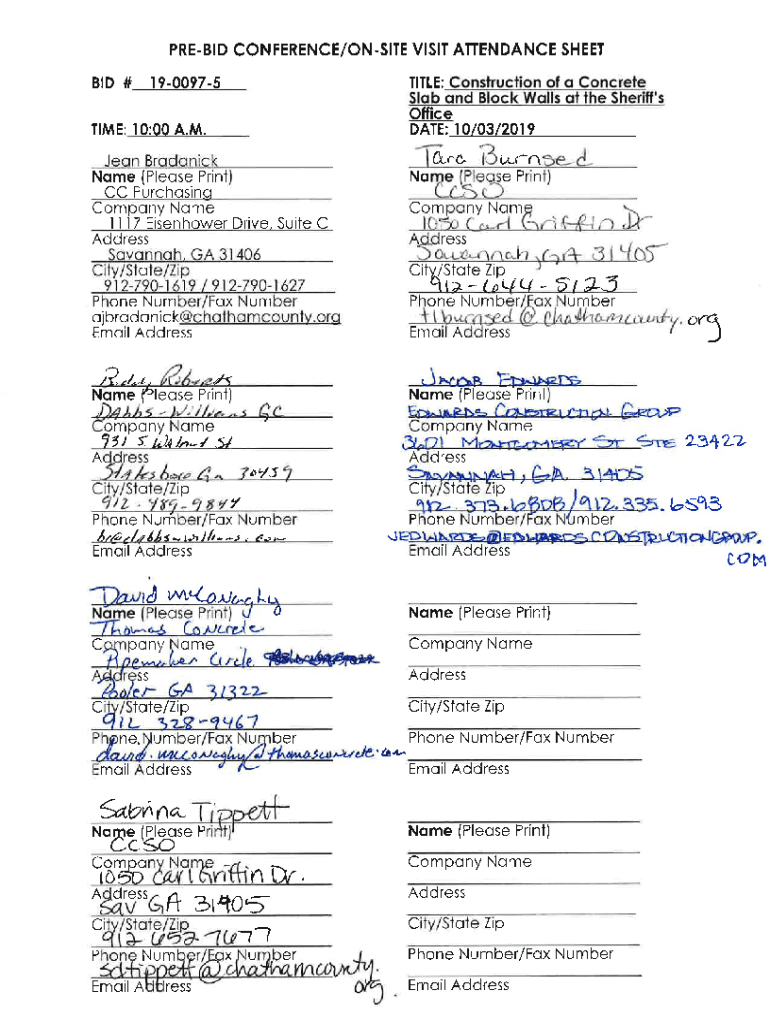 PRE-BID CONFERENCE/ON-SITE VISIT ATTENDANCE SHEET
BID # 19-0097-5
TITLE: Construction of a Concrete
Slab and Block Walls at the Sheriff's
Office
TIME: 10:00 A.M.
DATE: 10/03/2019
Jean Bradanick
Name (Please Print)
CC Purchasing
Company Name
1117 Eisenhower Drive, Suite C
Address
Savannah, GA 31406
City/State/Zip
912-790-1619 / 912-790-1627
Phone Number/Fax Number
ajbradanick@chathamcounty.org
Email Address
Tara Burnsed
Name (Please Print)
CCSO
Company Name
1050 Carl Griffin Dr
Address
Savannah, GA 31405
City/State Zip
912-644-5123
Phone Number/Fax Number
tlburnsed@chathamcounty.org
Email Address
Roberts
Name (Please Print)
Dabbs-Williams GC
Company Name
931 S Walnut St
Address
Statesboro Ga 30459
City/State/Zip
912-489-9844
Phone Number/Fax Number
br@dabbs-williams.com
Email Address
JACOB EDWARDS
Name (Please Print)
EDWARDS CONSTRUCTION GROUP
Company Name
3601 MONTGOMERY ST STE 23422
Address
SAVANNAH, GA 31405
City/State Zip
912.373.6808/912.335.6593
Phone Number/Fax Number
JEDWARDS@EDWARDSCONSTRUCTIONGROUP.
COM
Email Address
David McConaghy
Name (Please Print)
Thomas Concrete
Company Name
Pipemaker Circle
Address
Pooler GA 31322
City/State/Zip
912 328-9467
Phone Number/Fax Number
david.mcconaghy@thomasconcrete.com
Email Address
Name (Please Print)
Company Name
Address
City/State Zip
Phone Number/Fax Number
Email Address
Sabrina Tippett
Name (Please Print)
CCSO
Company Name
1050 Carl Griffin Dr.
Address
Sav GA 31405
City/State/Zip
912 652 7677
Phone Number/Fax Number
sdtippett@chathamcounty.
org
Email Address
Name (Please Print)
Company Name
Address
City/State Zip
Phone Number/Fax Number
Email Address